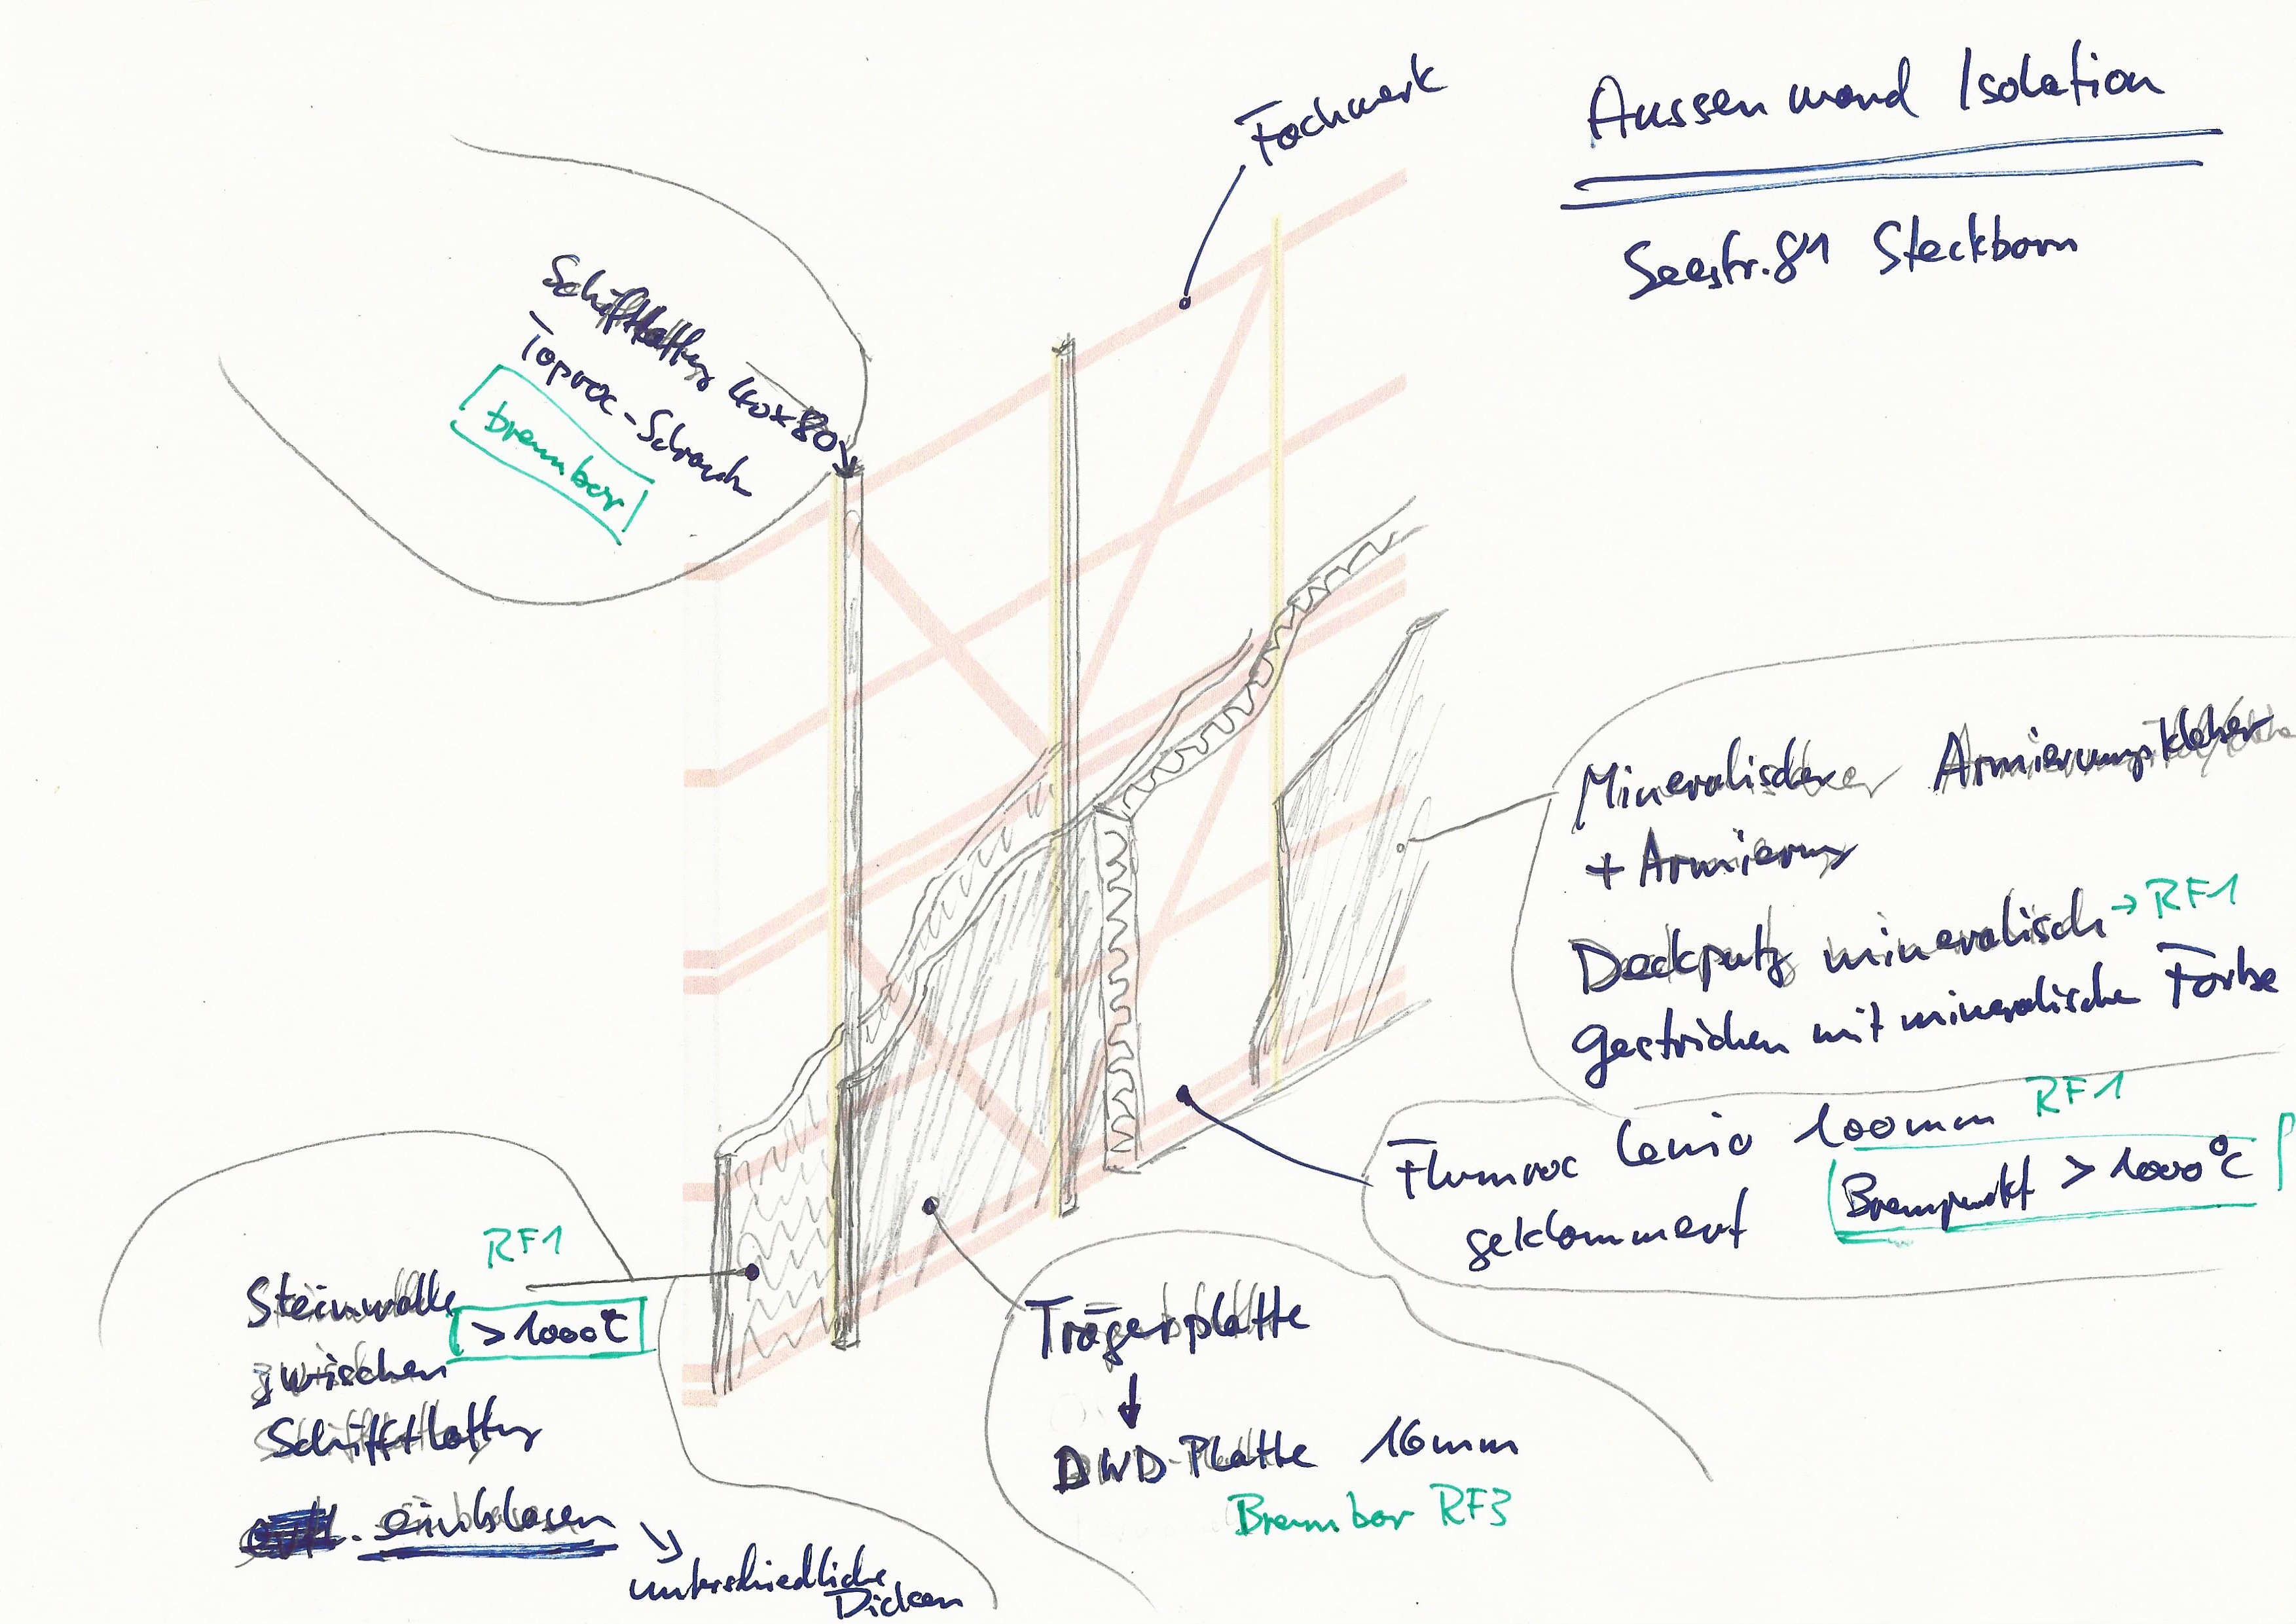 Aussenwand Isolation
Seestr. 81 Steckborn
Fachwerk
Schiftlattung 40x80
Toproc-Schraub
brennbar
Mineralischer Armierungskleber
+ Armierung
Deckputz mineralisch → RF1
gestrichen mit mineralische Farbe
Flumroc Lenio 100mm RF1
geklammert
Brennpunkt > 1000°C
RF1
Steinwolle
> 1000°C
zwischen
Schiftlattung
einblasen
unterschiedliche
Dicken
Trägerplatte
↓
DWD-Platte 16mm
Brennbar RF3